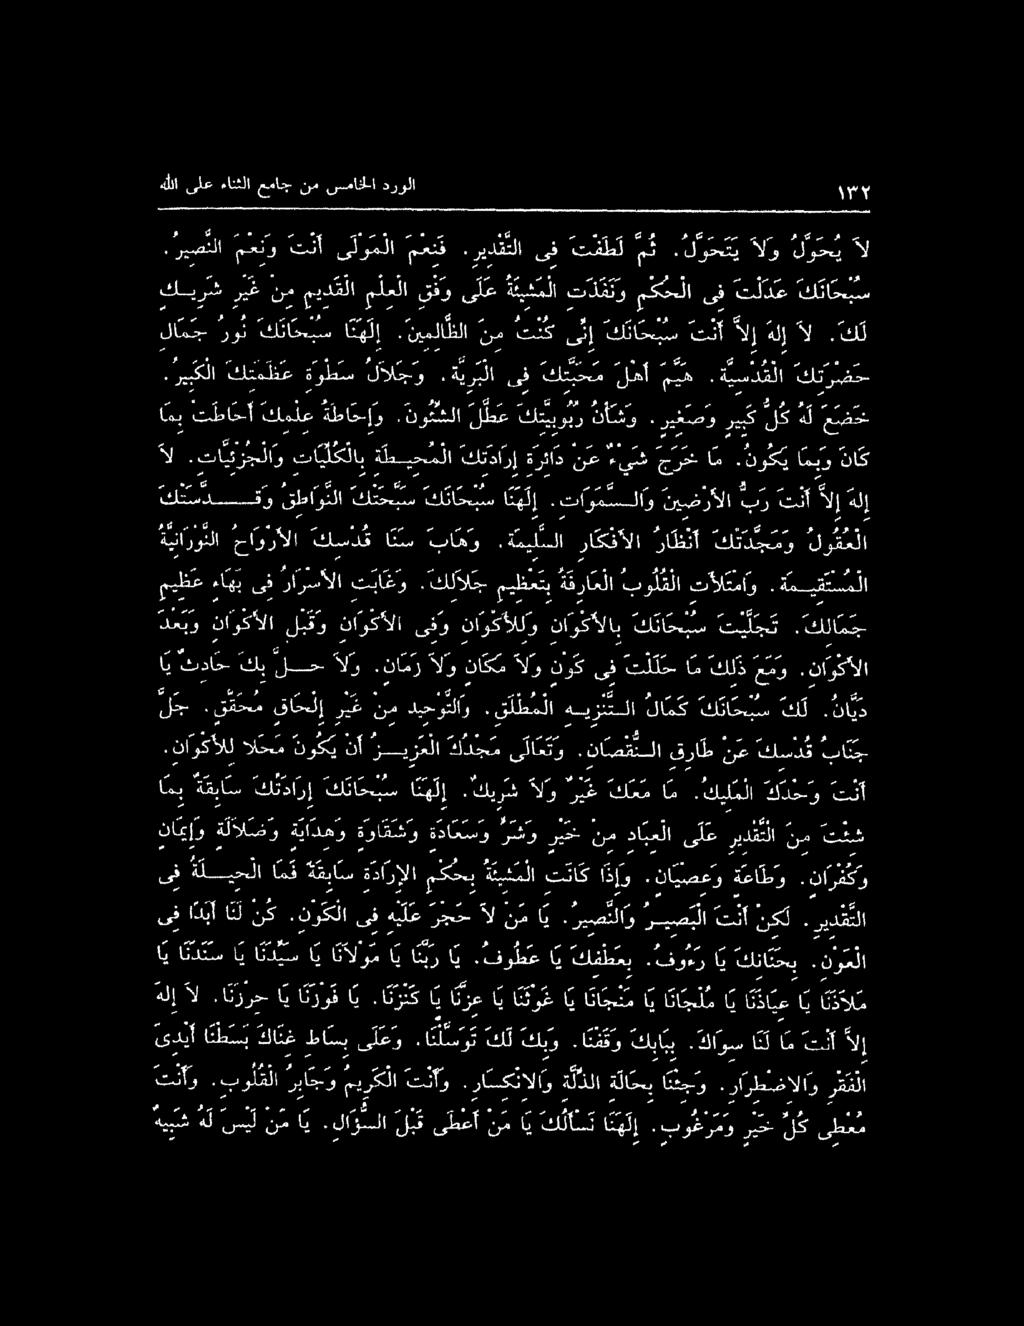 ١٣٢ الورد الخامس من جامع الثناء على الله
لاَ يُحَوَّلُ وَلاَ يَتَحَوَّلُ. ثُمَّ لَطَفْتَ فِى التَّقْدِيرِ. فَنِعْمَ الْمَوْلَى أَنْتَ وَنِعْمَ النَّصِيرُ.
سُبْحَانَكَ عَدَلْتَ فِى الْحُكْمِ وَنَفَذَتِ الْمَشِيئَةُ عَلَى وَفْقِ الْعِلْمِ الْقَدِيمِ مِنْ غَيْرِ شَرِيـكٍ
لَكَ. لاَ إِلهَ إِلاَّ أَنْتَ سُبْحَانَكَ إِنِّى كُنْتُ مِنَ الظَّالِمِينَ. إِلَهَنَا سُبْحَانَكَ نُورُ جَمَالِ
حَضْرَتِكَ الْقُدْسِيَّة. هَيَّمَ أَهْلَ مَحَبَّتِكَ فِى الْبَرِيَّة. وَجَلاَلُ سَطْوَةِ عَظَمَتِكَ الْكَبِيرُ.
خَضَعَ لَهُ كُلُّ كَبِيرٍ وَصَغِيرٍ. وَشَأْنُ رُبُوبِيَّتِكَ عَطَّلَ الشُّئُونَ. وَإِحَاطَةُ عِلْمِكَ أَحَاطَتْ بِمَا
كَانَ وَبِمَا يَكُونُ. مَا خَرَجَ شَيْءٌ عَنْ دَائِرَةِ إِرَادَتِكَ الْمُحِيـطَةِ بِالْكُلِّيَّاتِ وَالْجُزْئِيَّاتِ. لاَ
إِلهَ إِلاَّ أَنْتَ رَبُّ الأَرَضِينَ وَالـسَّمَوَاتِ. إِلَهَنَا سُبْحَانَكَ سَبَّحَتْكَ النَّوَاطِقُ وَقَـــدَّسَتْكَ
الْعُقُولُ وَمَجَّدَتْكَ أَنْظَارُ الأَفْكَارِ السَّلِيمَة. وَهَابَ سَنَا قُدْسِكَ الأَرْوَاحُ النُّورَانِيَّةُ
الْمُسْتَقِيـمَة. وَامْتَلأَتِ الْقُلُوبُ الْعَارِفَةُ بِتَعْظِيمِ جَلاَلِكَ. وَغَابَتِ الأَسْرَارُ فِى بَهَاءِ عَظِيمِ
جَمَالِكَ. تَجَلَّيْتَ سُبْحَانَكَ بِالأَكْوَانِ وَلِلأَكْوَانِ وَفِى الأَكْوَانِ وَقَبْلَ الأَكْوَانِ وَبَعْدَ
الأَكْوَانِ. وَمَعَ ذَلِكَ مَا حَلَلْتَ فِى كَوْنٍ وَلاَ مَكَانٍ وَلاَ زَمَانٍ. وَلاَ حــلَّ بِكَ حَادِثٌ يَا
دَيَّانُ. لَكَ سُبْحَانَكَ كَمَالُ الـتَّنْزِيـهِ الْمُطْلَقِ. وَالتَّوْحِيدِ مِنْ غَيْرِ إِلْحَاقٍ مُحَقَّقٍ. جَلَّ
جَنَابُ قُدْسِكَ عَنْ طَارِقِ الـنُّقْصَانِ. وَتَعَالَى مَجْدُكَ الْعَزِيـزُ أَنْ يَكُونَ مَحَلا لِلأَكْوَانِ.
أَنْتَ وَحْدَكَ الْمَلِيكُ. مَا مَعَكَ غَيْرٌ وَلاَ شَرِيكٌ. إِلَهَنَا سُبْحَانَكَ إِرَادَتُكَ سَابِقَةٌ بِمَا
شِئْتَ مِنَ التَّقْدِيرِ عَلَى الْعِبَادِ مِنْ خَيْرٍ وَشَرٍّ وَسَعَادَةٍ وَشَقَاوَةٍ وَهِدَايَةٍ وَضَلاَلَةٍ وَإِيمَانٍ
وَكُفْرَانٍ. وَطَاعَةٍ وَعِصْيَانٍ. وَإِذَا كَانَتِ الْمَشِيئَةُ بِحُكْمِ الإِرَادَةِ سَابِقَةً فَمَا الْحِيـلَةُ فِى
التَّقْدِيرِ. لَكِنْ أَنْتَ الْبَصِيـرُ وَالنَّصِيرُ. يَا مَنْ لاَ حَجْرَ عَلَيْهِ فِى الْكَوْنِ. كُنْ لَنَا أَبَدًا فِى
الْعَوْنِ. بِحَنَانِكَ يَا رَءُوفُ. بِعَطْفِكَ يَا عَطُوفُ. يَا رَبَّنَا يَا مَوْلاَنَا يَا سَيِّدَنَا يَا سَنَدَنَا يَا
مَلاَذَنَا يَا عِيَاذَنَا يَا مَلْجَانَا يَا مَنْجَانَا يَا غَوْثَنَا يَا عِزَّنَا يَا كَنْزَنَا. يَا فَوْزَنَا يَا حِرْزَنَا. لاَ إِلهَ
إِلاَّ أَنْتَ مَا لَنَا سِوَاكَ. بِبَابِكَ وَقَفْنَا. وَبِكَ لَكَ تَوَسَّلْنَا. وَعَلَى بِسَاطِ غِنَاكَ بَسَطْنَا أَيْدِىَ
الْفَقْرِ وَالاضْطِرَارِ. وَجِئْنَا بِحَالَةِ الذِّلَّةِ وَالانْكِسَارِ. وَأَنْتَ الْكَرِيمُ وَجَابِرُ الْقُلُوبِ. وَأَنْتَ
مُعْطِى كُلِّ خَيْرٍ وَمَرْغُوبٍ. إِلَهَنَا نَسْأَلُكَ يَا مَنْ أَعْطَى قَبْلَ السُّؤَالِ. يَا مَنْ لَيْسَ لَهُ شَبِيهٌ